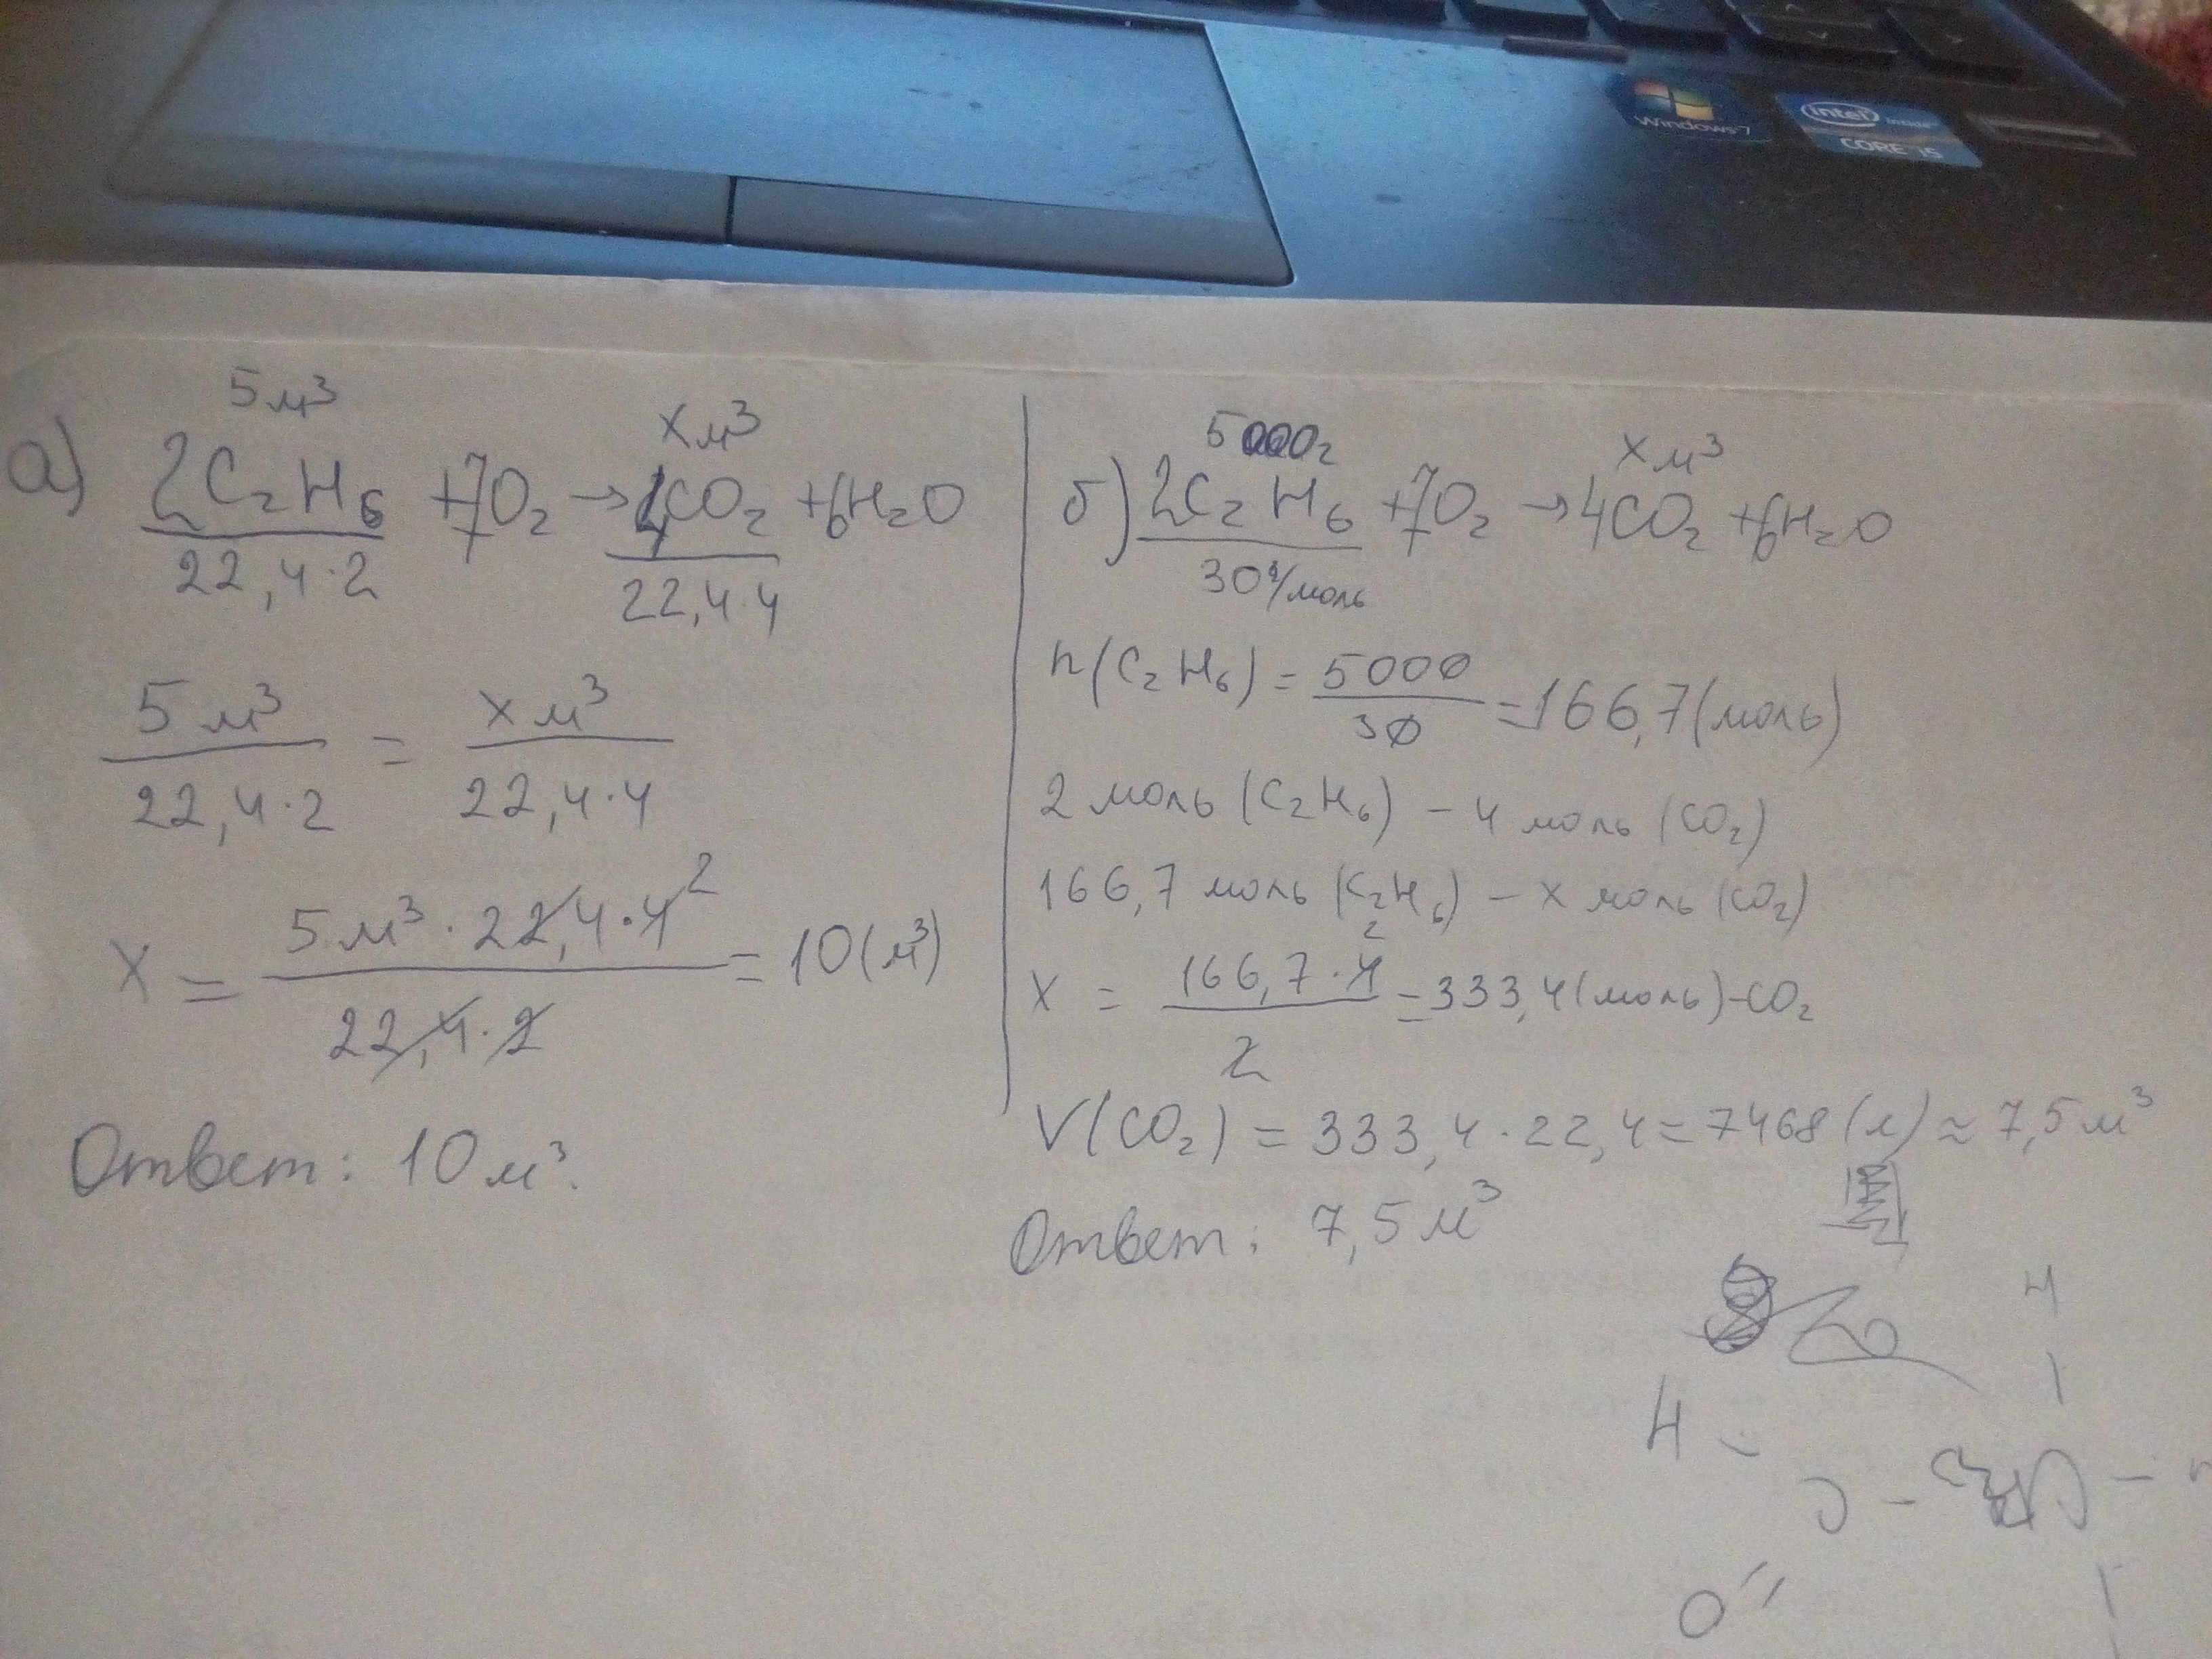 Windows 7
intel inside
CORE i5
а)
5 м³
x м³
2C₂H₆ + 7O₂ → 4CO₂ + 6H₂O
22,4·2
22,4·4
5 м³ / 22,4·2 = x м³ / 22,4·4
x = 5 м³ · 22,4 · 4 / 22,4 · 2 = 10 (м³)
2
Ответ: 10 м³.
б)
5000г
x м³
2C₂H₆ + 7O₂ → 4CO₂ + 6H₂O
30 г/моль
n(C₂H₆) = 5000 / 30 = 166,7 (моль)
2 моль (C₂H₆) – 4 моль (CO₂)
166,7 моль (C₂H₆) – x моль (CO₂)
2
x = 166,7 · 4 / 2 = 333,4 (моль) – CO₂
V(CO₂) = 333,4 · 22,4 = 7468 (л) ≈ 7,5 м³
Ответ: 7,5 м³
H
H
C
O